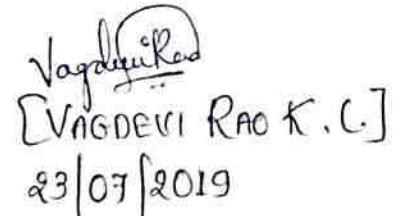 Vagdevi Rao
[VAGDEVI RAO K. C.]
23/07/2019